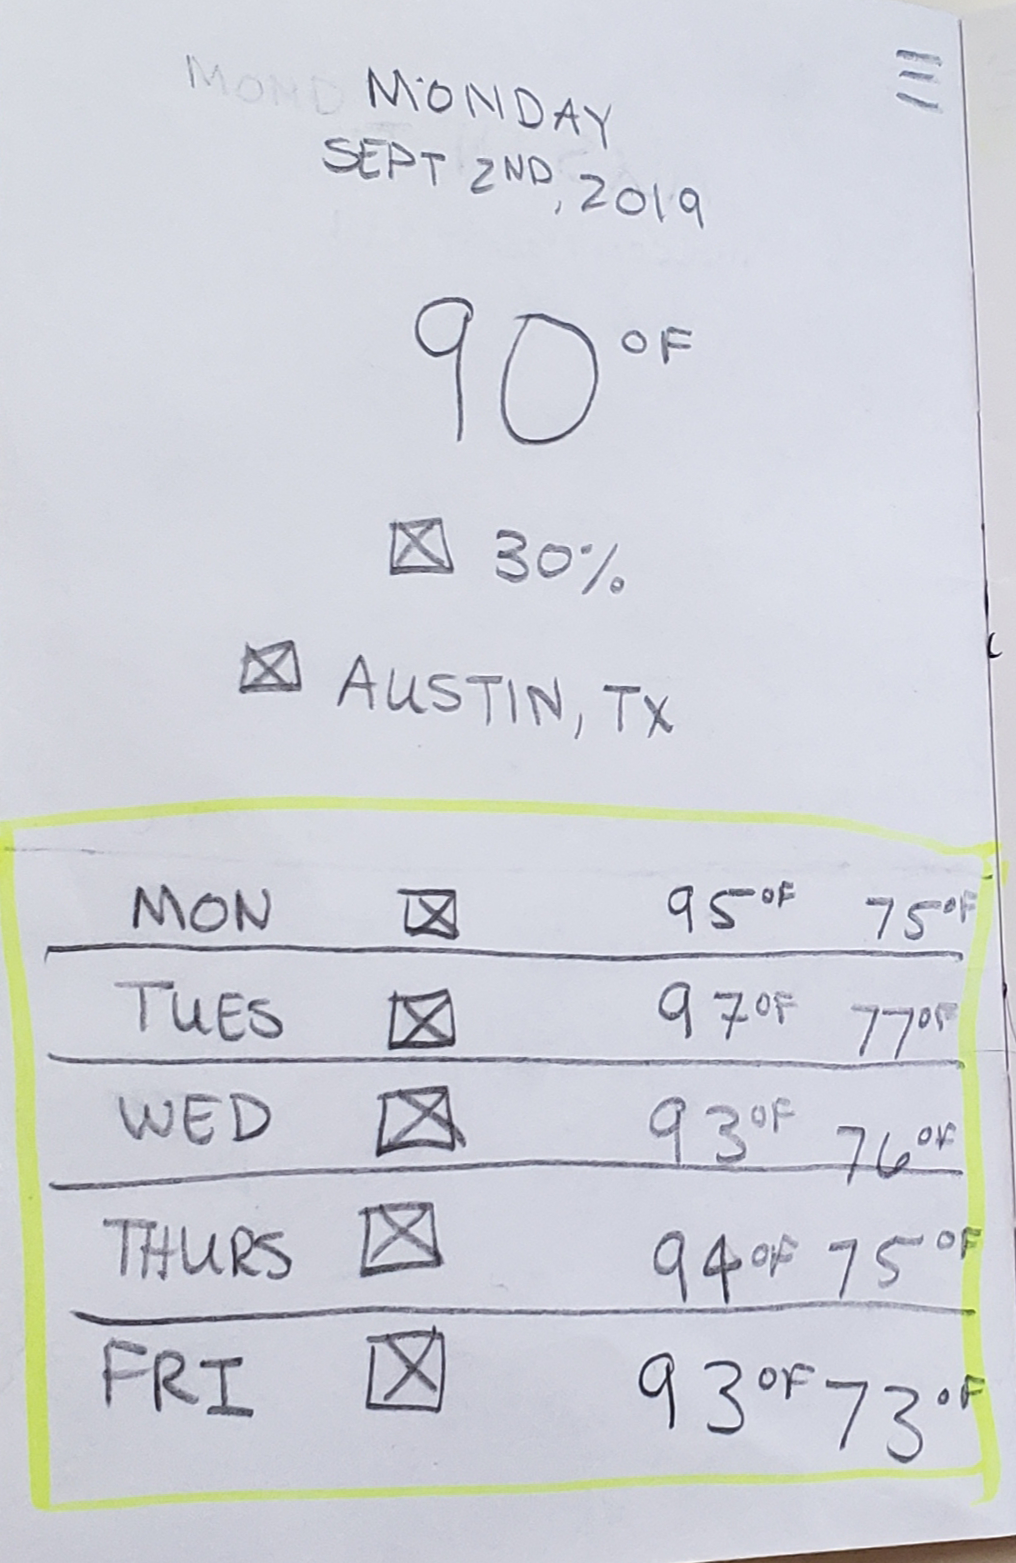 MOND MONDAY
SEPT 2ND, 2019
90 °F
30%
AUSTIN, TX
MON 95°F 75°F
TUES 97°F 77°F
WED 93°F 76°F
THURS 94°F 75°F
FRI 93°F 73°F